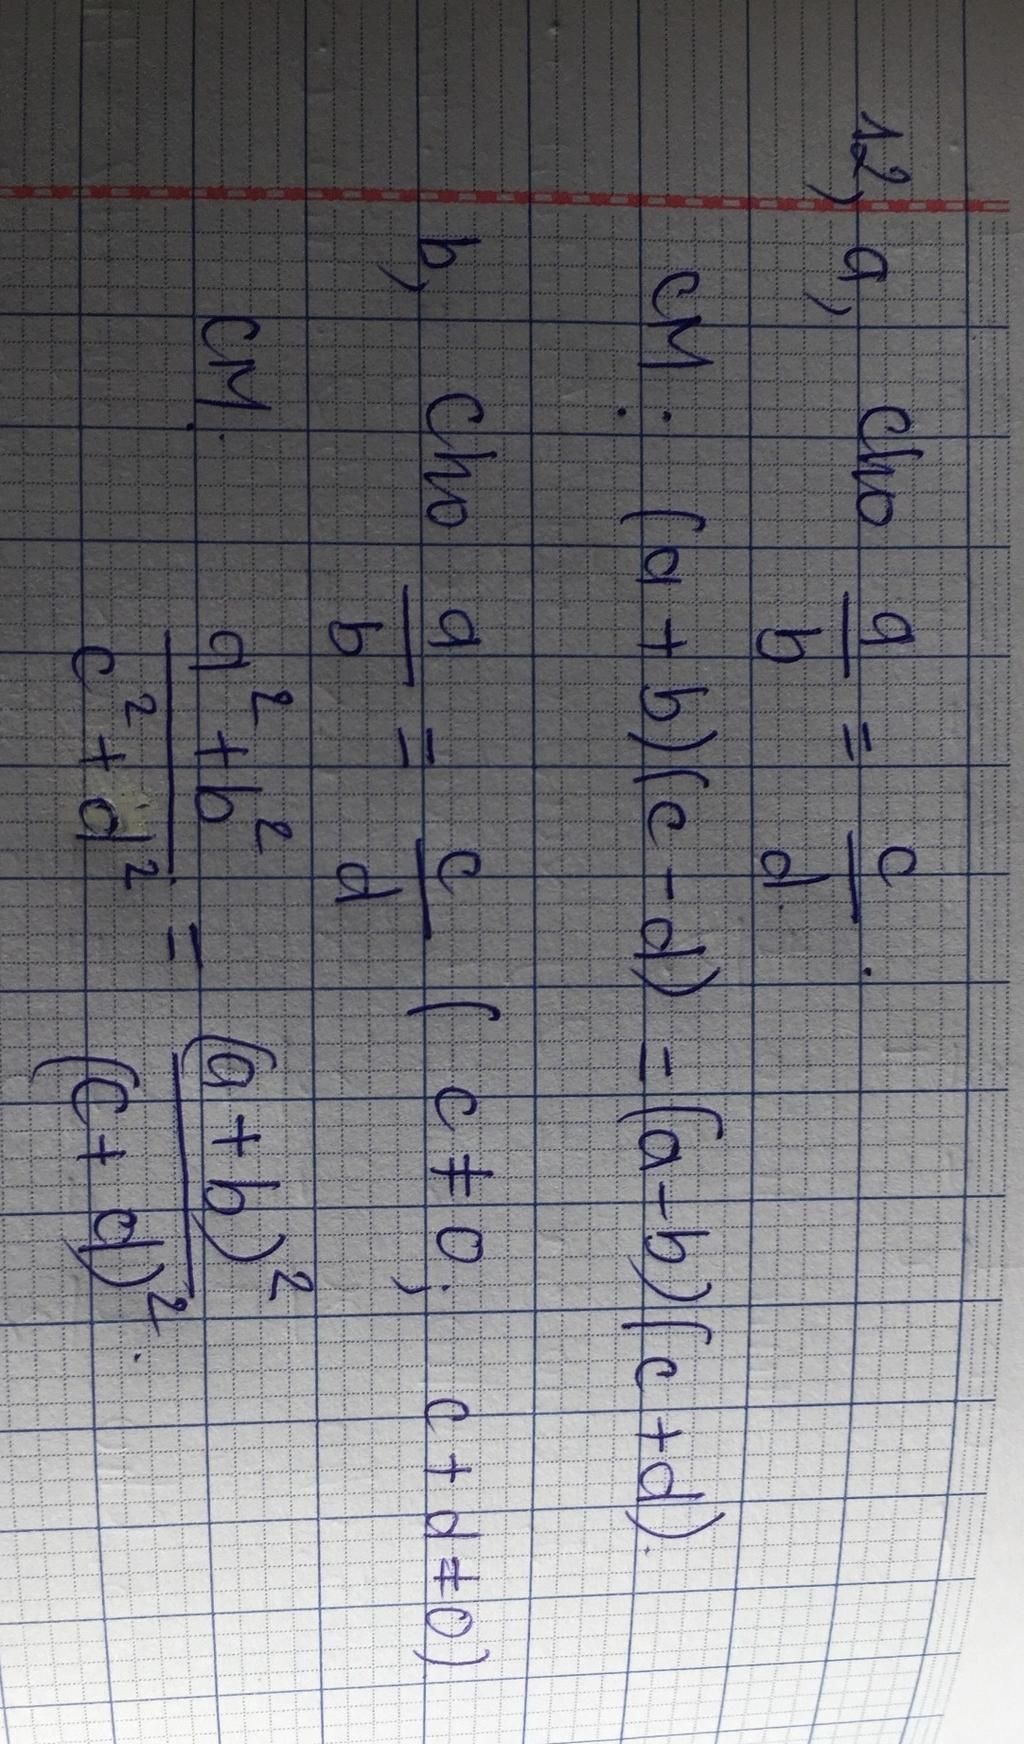 12, a, Cho a/b = c/d.
CM: (a + b)(c - d) = (a - b)(c + d).
b, Cho a/b = c/d (c ≠ 0; c + d ≠ 0)
CM: a² + b² / c² + d² = (a + b)² / (c + d)².